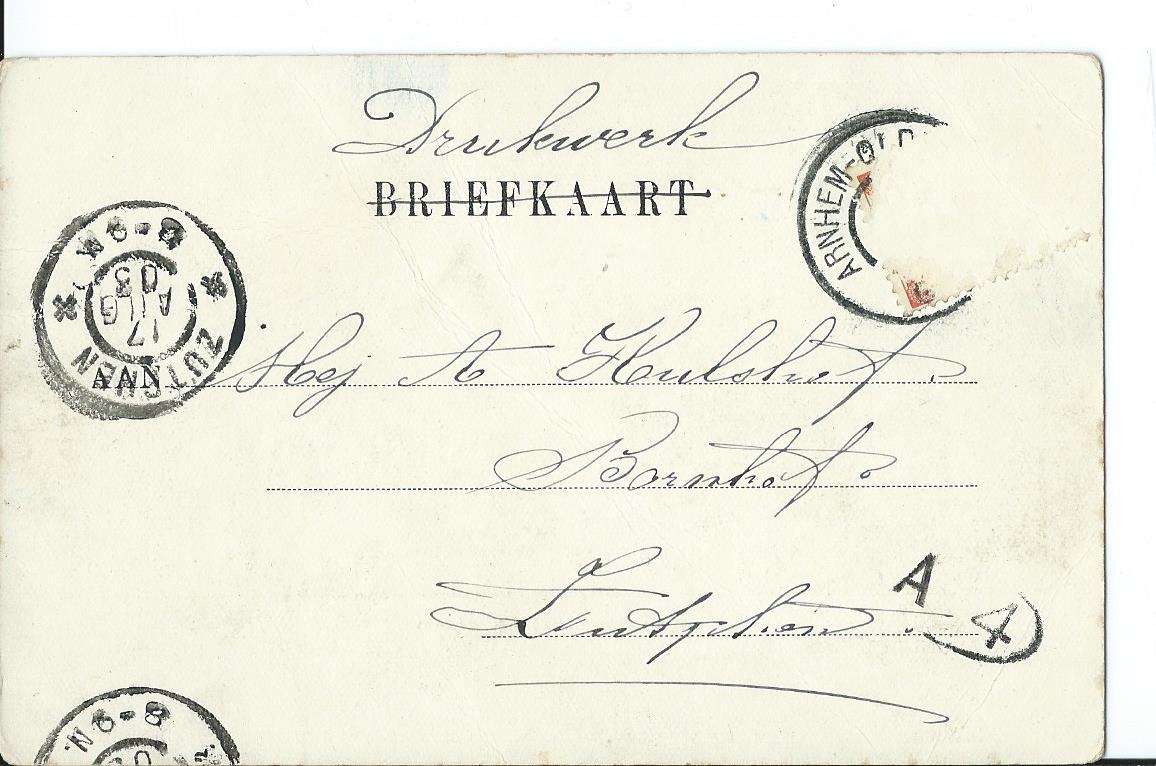 Drukwerk
BRIEFKAART
ARNHEM-OLD
ZUTPHEN
8-9 N
17
AUG
03
AAN
Mej A Hulshof.
Bornhof.
Zutphen.
A
4
8-9 N